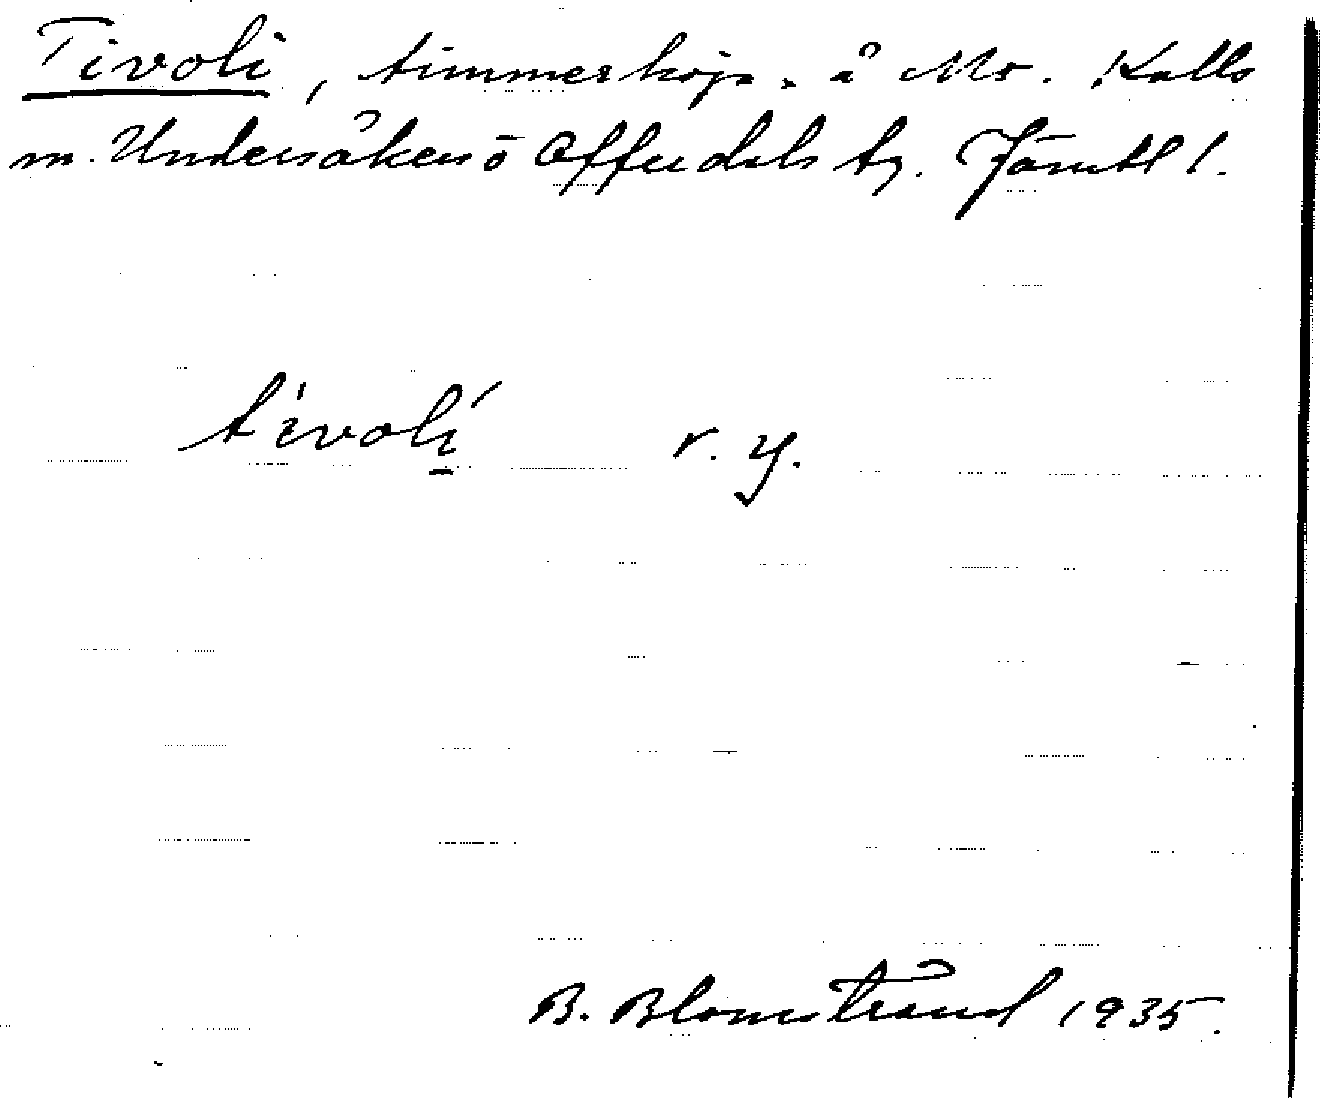 Tivoli, timmerkoja, å Mo. Kalls
m. Undersåkers o Offerdals tg. Jämtl l.
tivoli v. y.
B. Blomstrand 1935.